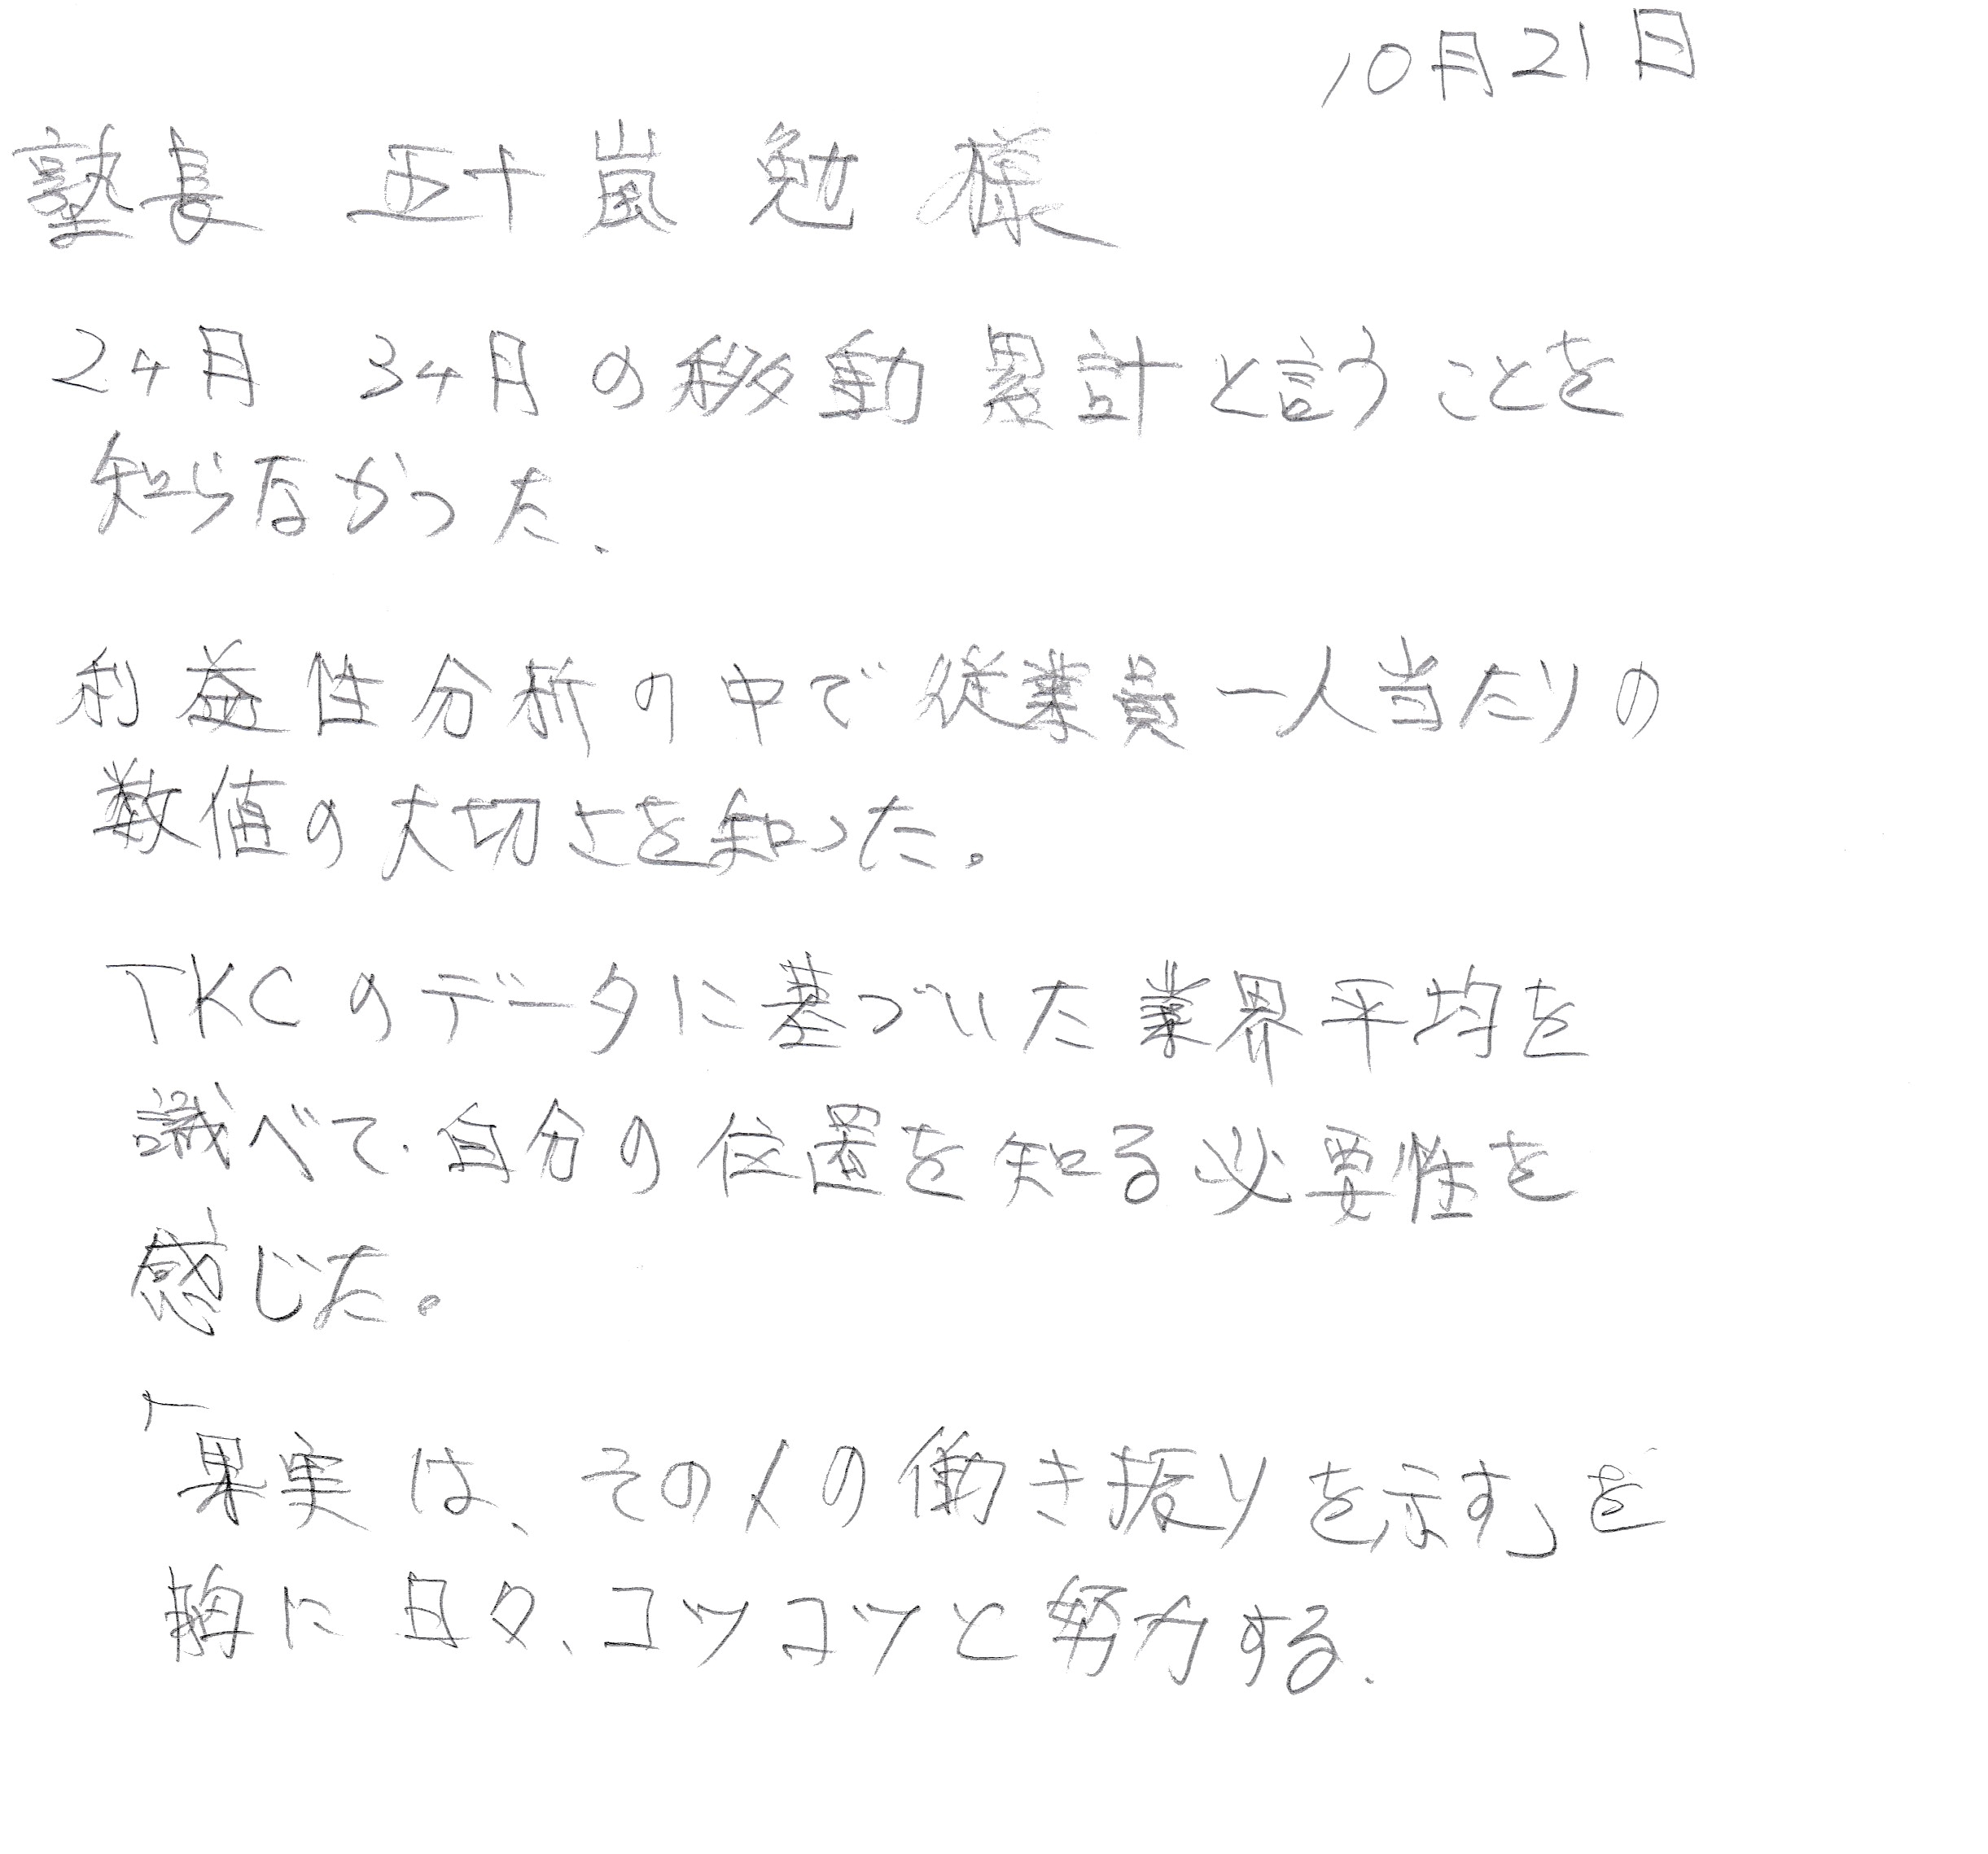 10月21日
塾長 五十嵐 勉 様
2ヶ月 3ヶ月の移動累計と言うことを
知らなかった.
利益性分析の中で従業員一人当たりの
数値の大切さを知った。
TKCのデータに基づいた業界平均を
識べて.自分の位置を知る必要性を
感じた。
「果実は、その人の働き振りを示す」を
胸に日々、コツコツと努力する.